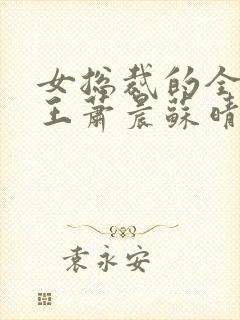 女总裁的全
王萧晨苏晴
袁永安